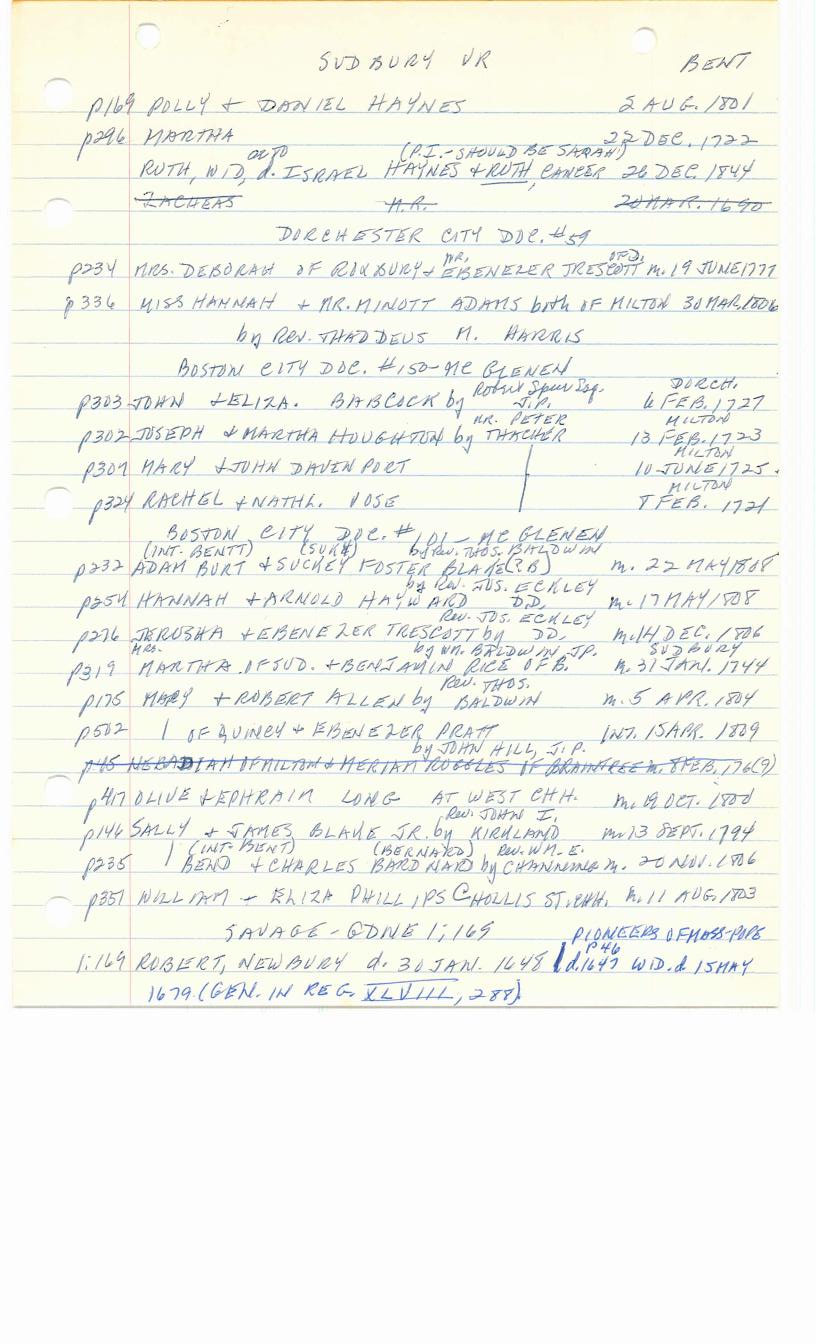 SUDBURY VR BENT
p169 POLLY & DANIEL HAYNES 2 AUG. 1801
p296 MARTHA 22 DEC. 1722
(P.I.-SHOULD BE SARAH)
RUTH, WID, d. ISRAEL HAYNES & RUTH, CANCER 26 DEC. 1844
ZACHEAS M.R. 20 MAR. 1690
DORCHESTER CITY DOC. #59
MR. OF D.
p234 MRS. DEBORAH OF ROXBURY & EBENEZER TRESCOTT m. 19 JUNE 1777
p336 MISS HANNAH & MR. MINOTT ADAMS both OF MILTON 30 MAR. 1806
by REV. THADDEUS M. HARRIS
BOSTON CITY DOC. #150-MC GLENEN
Robert Spur Esq. DORCH.
p303 JOHN & ELIZA. BABCOCK by J.P. 6 FEB. 1727
MR. PETER MILTON
p302 JOSEPH & MARTHA HOUGHTON by THACHER 13 FEB. 1723
MILTON
p307 MARY & JOHN DAVENPORT 10 JUNE 1725
MILTON
p324 RACHEL & NATHL. VOSE 8 FEB. 1721
BOSTON CITY DOC. #101-MC GLENEN
(INT. BENTT) (SUKY) by Rev. THOS. BALDWIN
p232 ADAM BURT & SUCKEY FOSTER BLAKE (P.B) m. 22 MAY 1808
by Rev. JOS. ECKLEY
p254 HANNAH & ARNOLD HAYWARD DD. m. 17 MAY 1808
Rev. JOS. ECKLEY
p276 JERUSHA & EBENEZER TRESCOTT by DD. m. 14 DEC. 1806
MRS. by WM. BALDWIN JP. SUDBURY
p319 MARTHA OF SUD. & BENJAMIN RICE OF B. m. 31 JAN. 1744
Rev. THOS.
p175 MARY & ROBERT ALLEN by BALDWIN m. 5 APR. 1804
p502 | OF QUINCY & EBENEZER PRATT INT. 15 APR. 1809
by JOHN HILL, J.P.
p45 NEBADIAH OF MILTON & MERIAM RUGGLES OF BRAINTREE m. 8 FEB. 176(9)
p417 OLIVE & EPHRAIM LONG AT WEST CHH. m. 19 OCT. 1800
Rev. JOHN T.
p146 SALLY & JAMES BLAKE JR. by KIRKLAND m. 13 SEPT. 1794
(INT. BENT) (BERNARD) Rev. WM. E.
p235 | BEND & CHARLES BARDNARD by CHANNING m. 20 NOV. 1806
p357 WILLIAM & ELIZA PHILLIPS @ HOLLIS ST. CHH. m. 11 AUG. 1803
SAVAGE-GDNE 1;169 PIONEERS OF MASS-POPE
P46
1:169 ROBERT, NEWBURY d. 30 JAN. 1648 | d. 1647 WID. d 15 MAY
1679. (GEN. IN REG. XLVIII, 288).